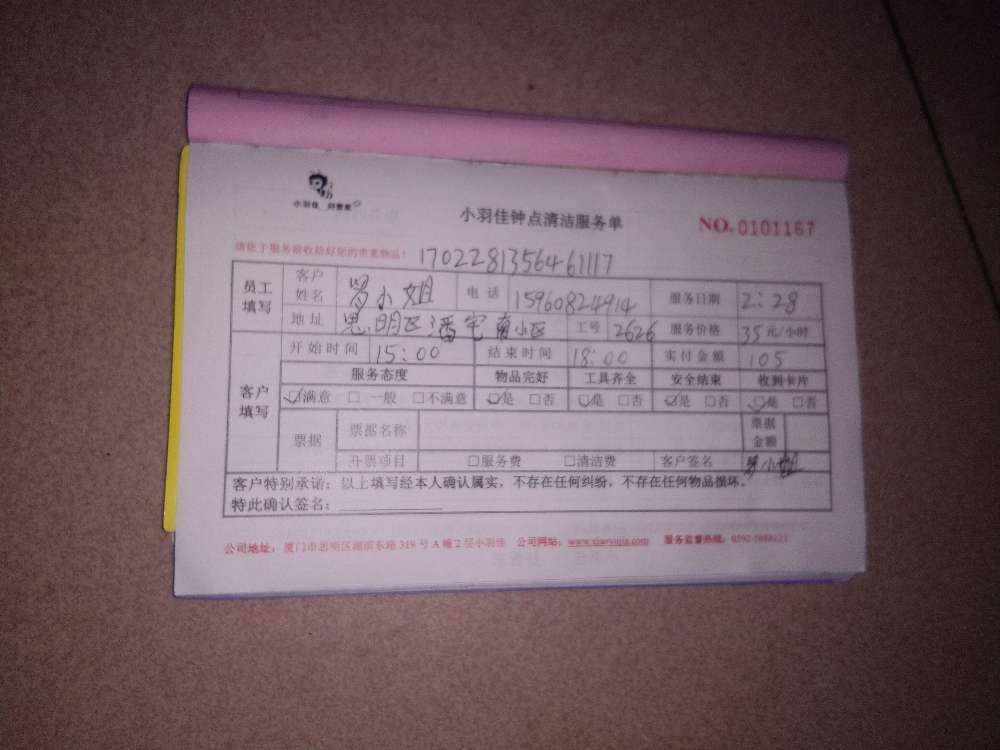 小羽佳 好管家
小羽佳钟点清洁服务单
NO. 0101167
请您于服务前收拾好您的贵重物品! 1702281356461117
员工填写 客户姓名 罗小姐 电话 15960824914 服务日期 2:28
地址 思明区潘宅南小区 工号 2626 服务价格 35元/小时
客户填写 开始时间 15:00 结束时间 18:00 实付金额 105
服务态度 物品完好 工具齐全 安全结束 收到卡片
☑满意 □一般 □不满意 ☑是 □否 ☑是 □否 ☑是 □否 ☑是 □否
票据 票据名称 票据金额
开票项目 □服务费 □清洁费 客户签名 罗小姐
客户特别承诺:以上填写经本人确认属实,不存在任何纠纷,不存在任何物品损坏。
特此确认签名:
公司地址:厦门市思明区湖滨东路319号A幢2层小羽佳 公司网站:www.xiaoyujia.com 服务监督热线: